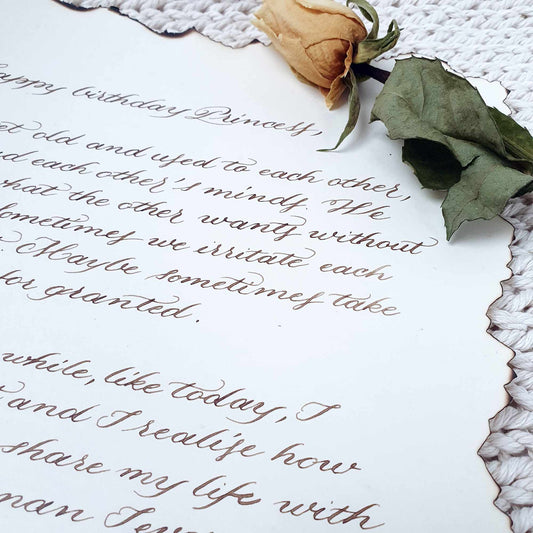 happy birthday Princess,
get old and used to each other,
read each other's minds. We
what the other wants without
Sometimes we irritate each
Maybe sometimes take
for granted.
while, like today, I
and I realise how
share my life with